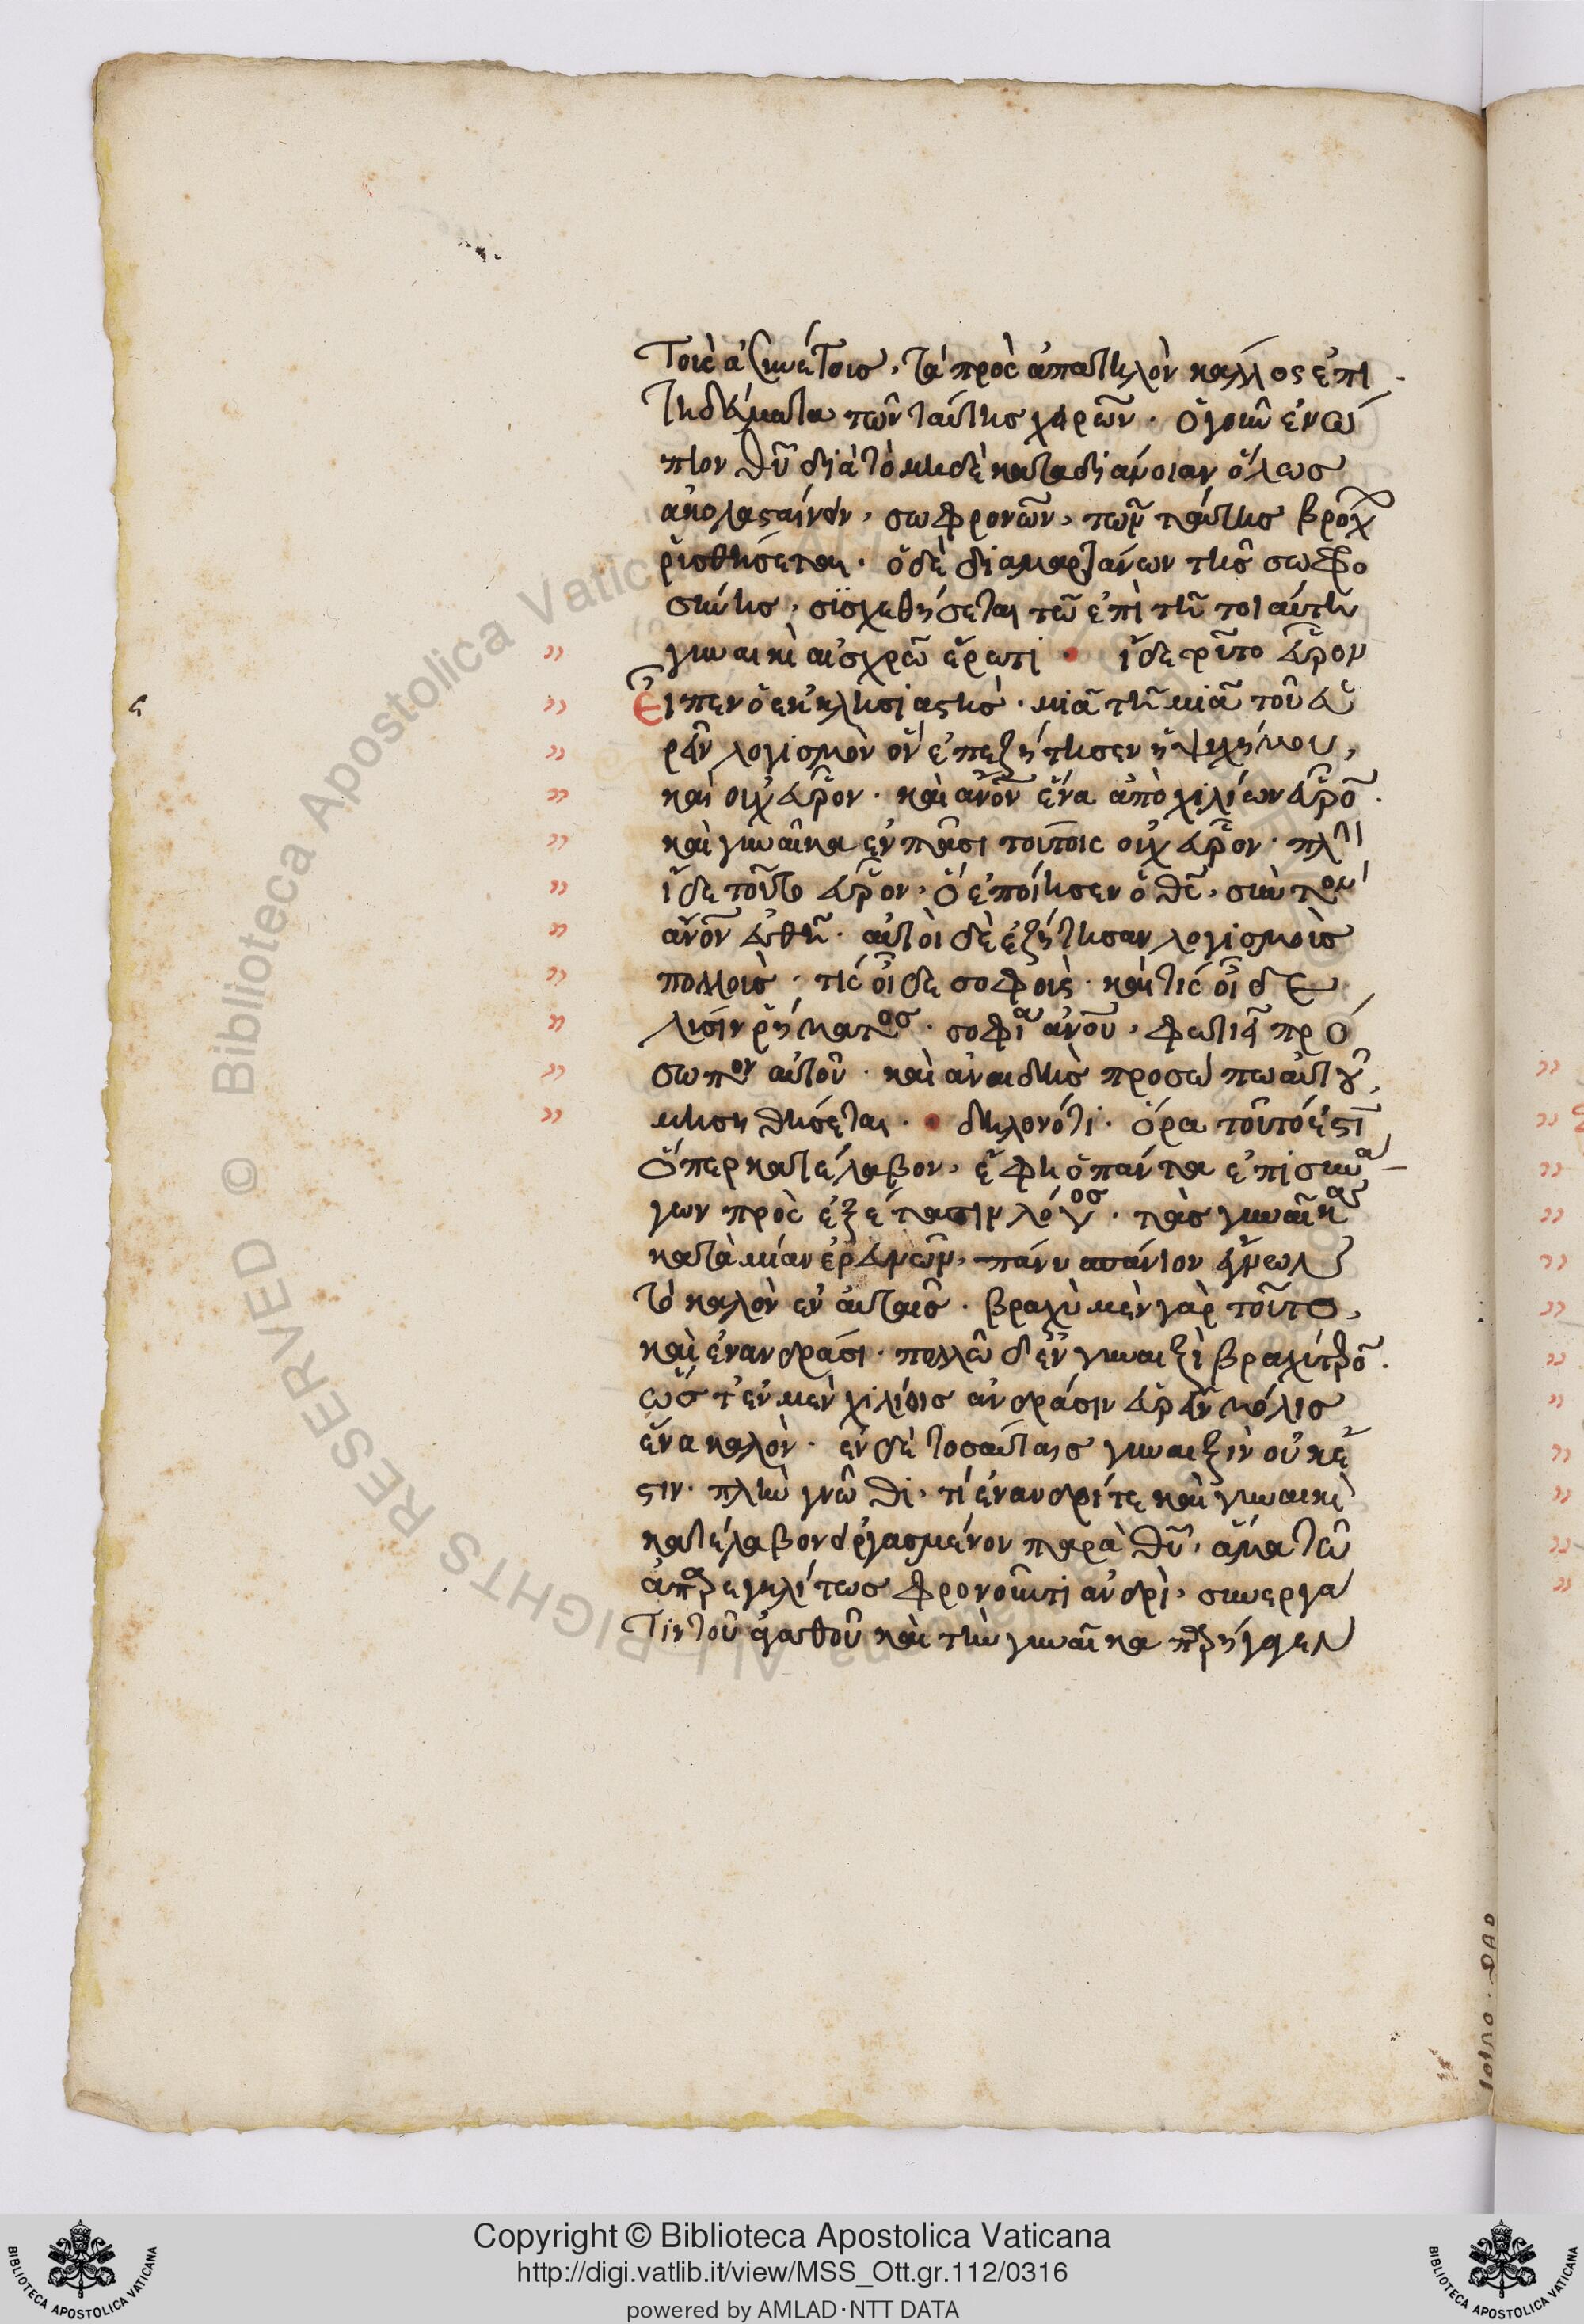 τοῖς ἀσυνέτοις, τὰ πρὸς ἀπατηλὸν κάλλος ἐπι
τηδεύματα τῶν ταύτης χειρῶν. ὁ γοῦν ἐνώ
πιον θυ διὰ τὸ μηδὲ κατα διάνοιαν ὅλως
ἀκολασταίνειν, σωφρονῶν, τῶν ταύτης βρόχ
ῥυσθήσεται. ὁ δὲ διαμαρτάνων τῆς σωφρο
σύνης, συσχεθήσεται τῶ ἐπὶ τῆ τοιαύτη
γυναικὶ αἰσχρῶ ἔρωτι · ἴδε τοῦτο εὗρον
Εἶπεν ὁ ἐκκλησιαστὴς. μία τῆ μιᾶ τοῦ εὑ
ρεῖν λογισμὸν ὃν ἐπεζήτησεν ἡ ψυχή μου,
καὶ οὐχ εὗρον. καὶ ανον ἕνα ἀπὸ χιλίων εὗρον.
καὶ γυναῖκα ἐν πᾶσι τούτοις οὐχ εὗρον. πλὴν
ἴδε τοῦτο εὗρον, ὃ ἐποίησεν ὁ θς, σὺν τον
ανον εὐθῆ. αὐτοὶ δὲ ἐζήτησαν λογισμοὺς
πολλοὺς. τίς οἶδε σοφοὺς. καὶ τίς οἶδε
λύσιν ῥήματος. σοφία ανου, φωτιεῖ πρό
σωπον αὐτοῦ. καὶ ἀναιδὴς προσώπω αὐτοῦ,
μισηθήσεται. · δηλονότι. ὅρα τοῦτό ἐστι
ὅπερ κατέλαβον, ἔφη ὁ πάντα ἐπισυνά
γων πρὸς ἐξέτασιν λόγος. τὰς γυναῖκας
κατὰ μίαν ἐρευνῶν, πάνυ σπάνιον εὗρων
τὸ καλὸν ἐν αὐταῖς. βραχὺ μὲν γὰρ τοῦτο,
καὶ ἐν ανδράσι. πολλῶ δ' ἐν γυναιξὶ βραχύτερον.
ὥστ' ἐν μὲν χιλίοις ἀνδράσιν εὑρεῖν μόλις
ἕνα καλὸν. ἐν δὲ τοσαύταις γυναιξὶν οὐκ ἔ
στιν. πλὴν γνῶθι, τί ἐν ανδρί τε καὶ γυναικὶ
κατέλαβον εἰργασμένον παρὰ θυ, ἅμα τῶ
ἀπαρεγκλίτως φρονοῦντι ἀνδρὶ, συνεργά
τιν τοῦ ἀγαθοῦ καὶ τὴν γυναῖκα παρήγαγεν
Copyright © Biblioteca Apostolica Vaticana
http://digi.vatlib.it/view/MSS_Ott.gr.112/0316
powered by AMLAD·NTT DATA